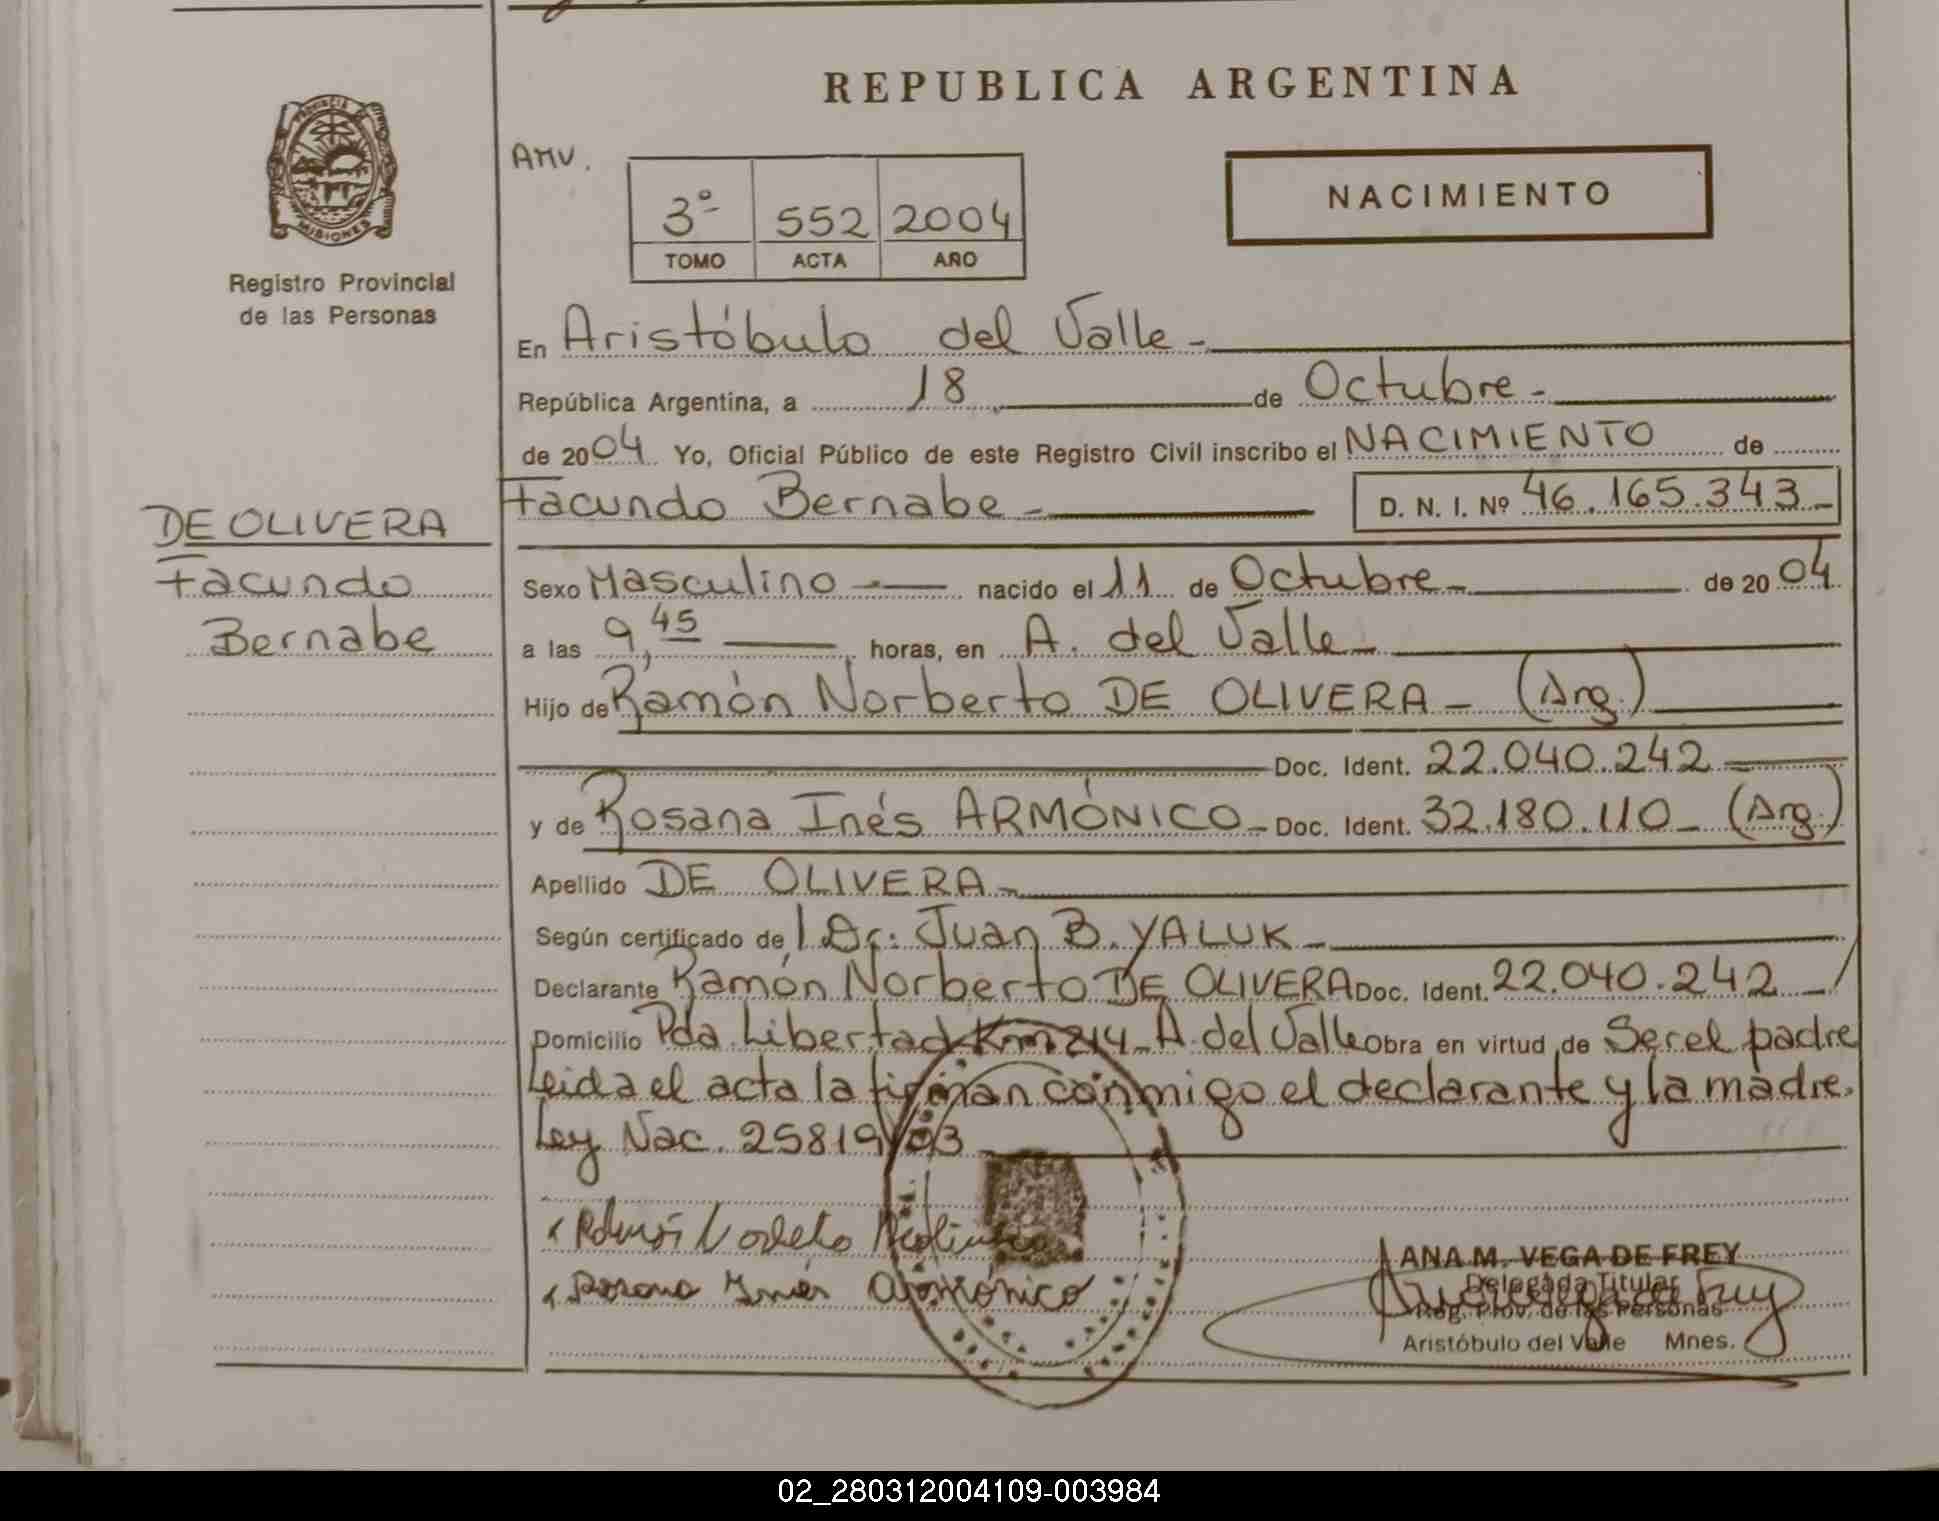 REPUBLICA ARGENTINA
PROVINCIA DE
MISIONES
Registro Provincial
de las Personas
AMV.
3º 552 2004
TOMO ACTA AÑO
NACIMIENTO
En Aristóbulo del Valle -
República Argentina, a 18 de Octubre -
de 2004 Yo, Oficial Público de este Registro Civil inscribo el NACIMIENTO de
Facundo Bernabe - D. N. I. Nº 46.165.343 -
DE OLIVERA
Facundo
Bernabe
Sexo Masculino - nacido el 11 de Octubre - de 2004
a las 9,45 horas, en A. del Valle -
Hijo de Ramón Norberto DE OLIVERA - (Arg.)
Doc. Ident. 22.040.242
y de Rosana Inés ARMÓNICO - Doc. Ident. 32.180.110 - (Arg.)
Apellido DE OLIVERA -
Según certificado de, Dr. Juan B. YALUK -
Declarante Ramón Norberto DE OLIVERA Doc. Ident. 22.040.242 - /
Domicilio Pda. Libertad Km 214 - A. del Valle obra en virtud de Ser el padre
Leida el acta la firman conmigo el declarante y la madre.
Ley Nac. 25819/03
Rosana Inés Armónico
ANA M. VEGA DE FREY
Delegada Titular
Reg. Prov. de las Personas
Aristóbulo del Valle Mnes.
02_280312004109-003984